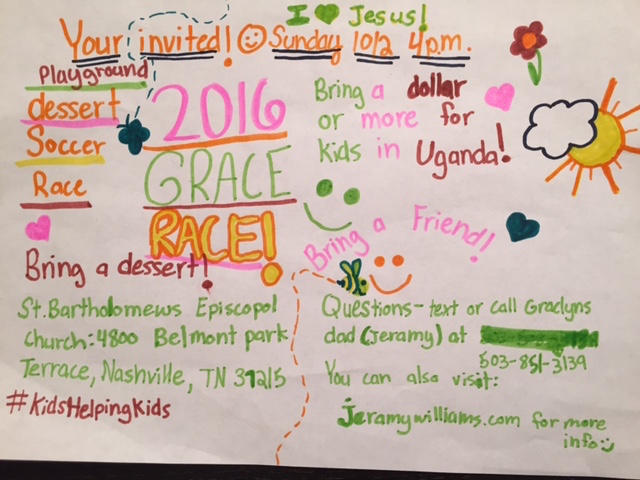 I ♥ Jesus!
Your invited! Sunday 10/2 4p.m.
Playground
dessert
Soccer
Race
2016
GRACE
RACE!
Bring a dollar
or more for
kids in Uganda!
Bring a Friend!
Bring a dessert!
St.Bartholomews Episcopol
church: 4800 Belmont park
Terrace, Nashville, TN 37215
#KidsHelpingKids
Questions- text or call Graclyns
dad (Jeramy) at
503-851-3139
You can also visit:
jeramywilliams.com for more
info:)